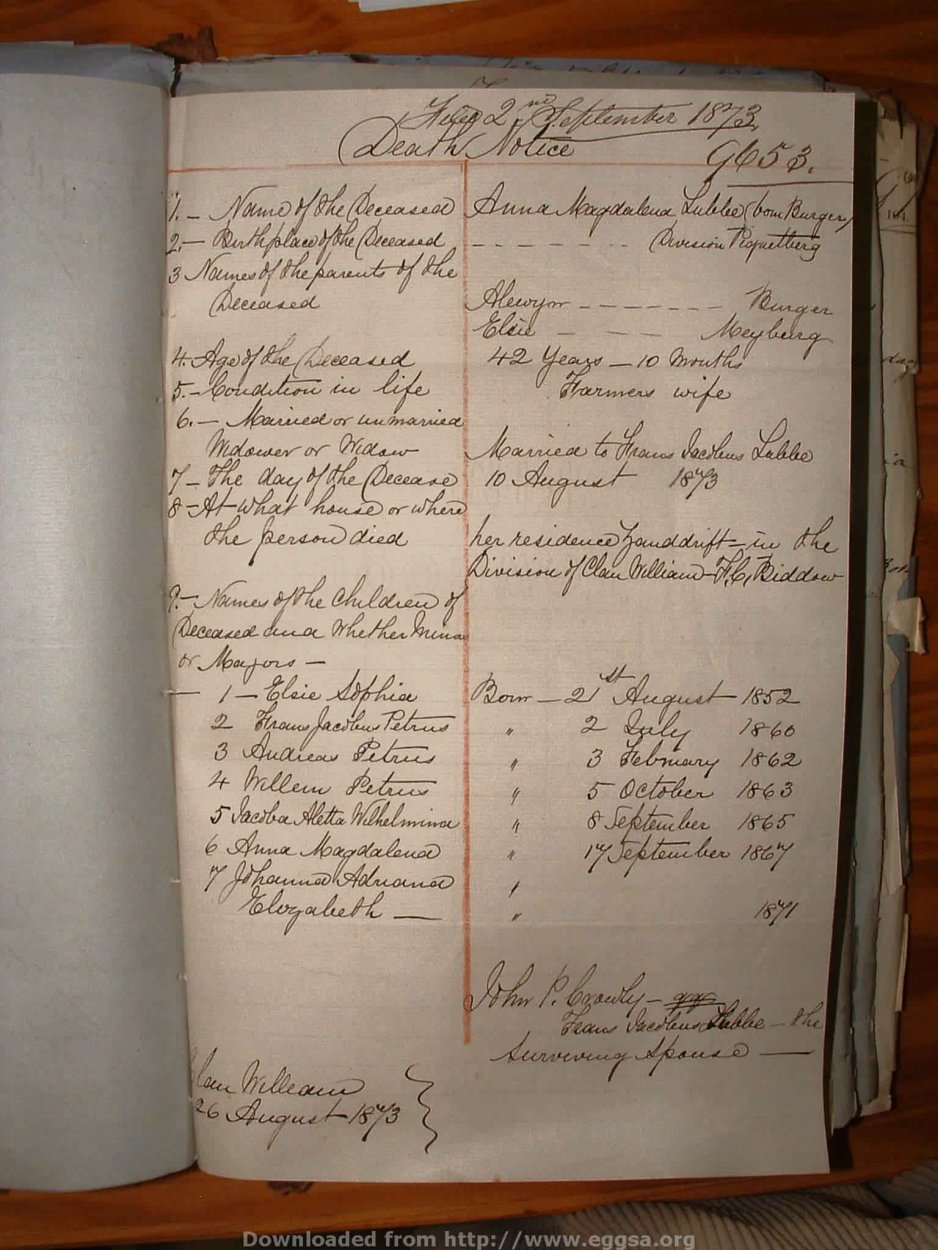 Filed 2nd September 1873
Death Notice
9653.
1. — Name of the Deceased Anna Magdalena Lubbe (born Burger)
2. — Birthplace of the Deceased - - - - - - - Division Piquetberg
3 Names of the parents of the
Deceased Alewyn - - - - - - Burger
Elsie - - - Meyburg
4. Age of the Deceased 42 Years — 10 Months
5. — Condition in life Farmers wife
6. — Married or unmarried
Widower or Widow Married to Frans Jacobus Lubbe
7 — The day of the Decease 10 August 1873
8 — At what house or where
the person died her residence Zanddrift — in the
Division of Clan William —
9. — Names of the Children of
Deceased and whether Minors
or Majors —
1 — Elsie Sophia Born — 21st August 1852
2 Frans Jacobus Petrus " 2 July 1860
3 Andreas Petrus " 3 February 1862
4 Willem Petrus " 5 October 1863
5 Jacoba Aletta Wilhelmina " 8 September 1865
6 Anna Magdalena " 17 September 1867
7 Johanna Adriana "
Elizabeth — " 1871
John P. Crowly —
Frans Jacobus Lubbe — the
Surviving Spouse —
Clan William
26 August 1873
Downloaded from http://www.eggsa.org